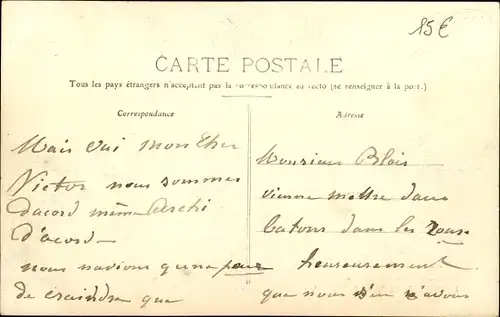 15€
CARTE POSTALE
Tous les pays étrangers n'acceptent pas la correspondance au recto (se renseigner à la poste)
Correspondance
Mais oui mon Cher
Victor nous sommes
dacord même Archi
D'acord
nous navions qu'une peur
de craindre que
Adresse
Monsieur Blois
vienne mettre dans
batons dans les roues
heureusement
que nous n'avons